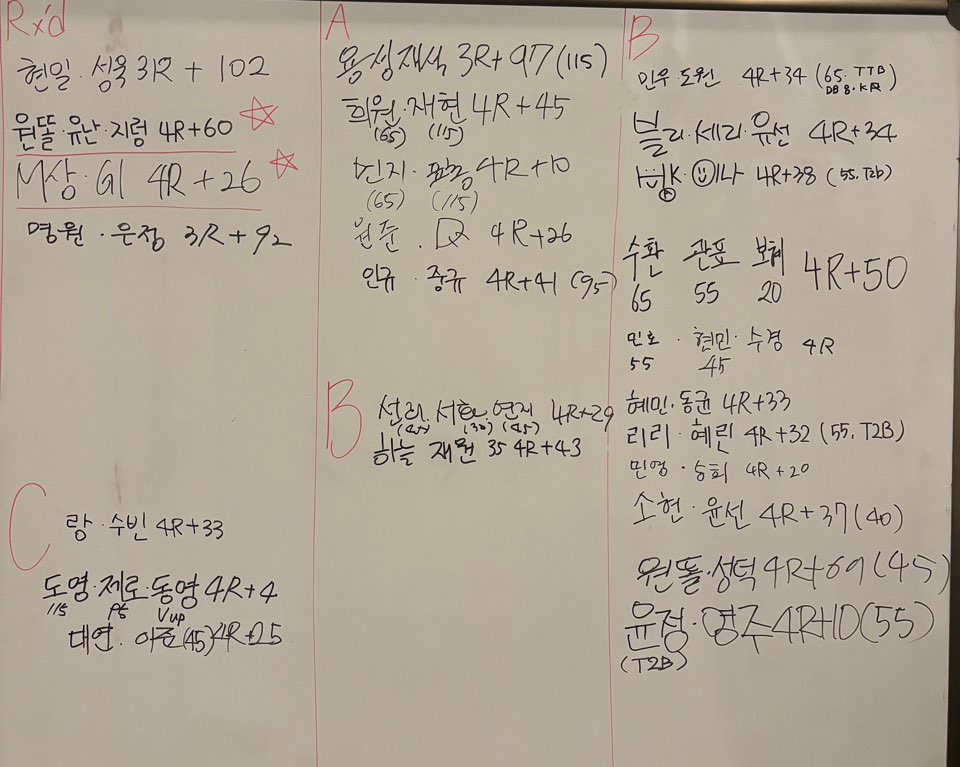 Rx'd
현일·성욱 3R + 102
원똘·유난·지렁 4R+60
M상·GI 4R + 26
명원·은정 3R+92
C
랑·수빈 4R+33
도영·제로·동영 4R+4
115 Vup
대연·아준(45) 4R+25
A
용성재석 3R+97(115)
희원·재현 4R+45
(65) (115)
민지· 4R+10
(65) (115)
원준· 4R+26
인규·중규 4R+41 (95)
B
선라·서현·연지 4R+29
(30) (45)
하늘 재원 35 4R+43
B
민우·도원 4R+34 (65. TTB
DB 8.
블리·세리·유선 4R+34
나 4R+38 (55.T2b)
수환 관표 보혜 4R+50
65 55 20
민호·현민·수경 4R
55 45
혜민·동균 4R+33
리리·혜린 4R+32 (55.T2B)
민영·승희 4R+20
소현·윤선 4R+37(40)
원똘·성덕 4R+69(45)
윤정·영주 4R+10(55)
(T2B)